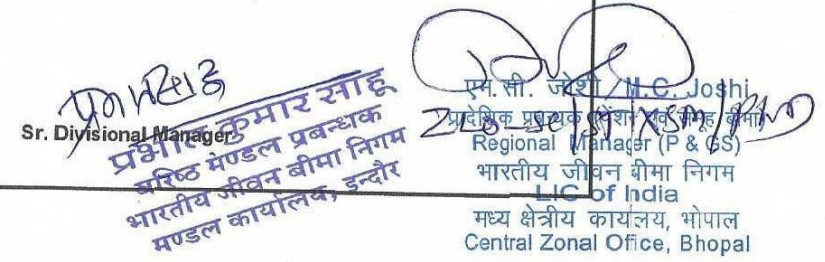 Sr. Divisional Manager
प्रभात कुमार साहू
वरिष्ठ मण्डल प्रबन्धक
भारतीय जीवन बीमा निगम
मण्डल कार्यालय, इन्दौर
एम. सी. जोशी / M.C. Joshi
प्रादेशिक प्रबंधक (पेंशन एवं समूह बीमा)
Regional Manager (P & GS)
भारतीय जीवन बीमा निगम
LIC of India
मध्य क्षेत्रीय कार्यालय, भोपाल
Central Zonal Office, Bhopal